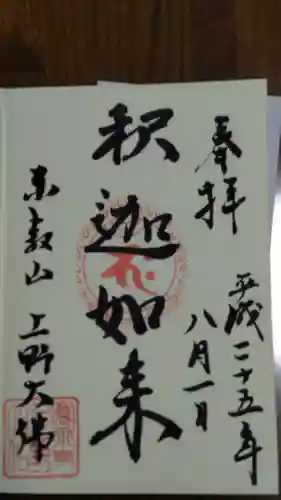 奉拝
平成二十五年
八月一日
釈迦如来
東叡山 上野大佛